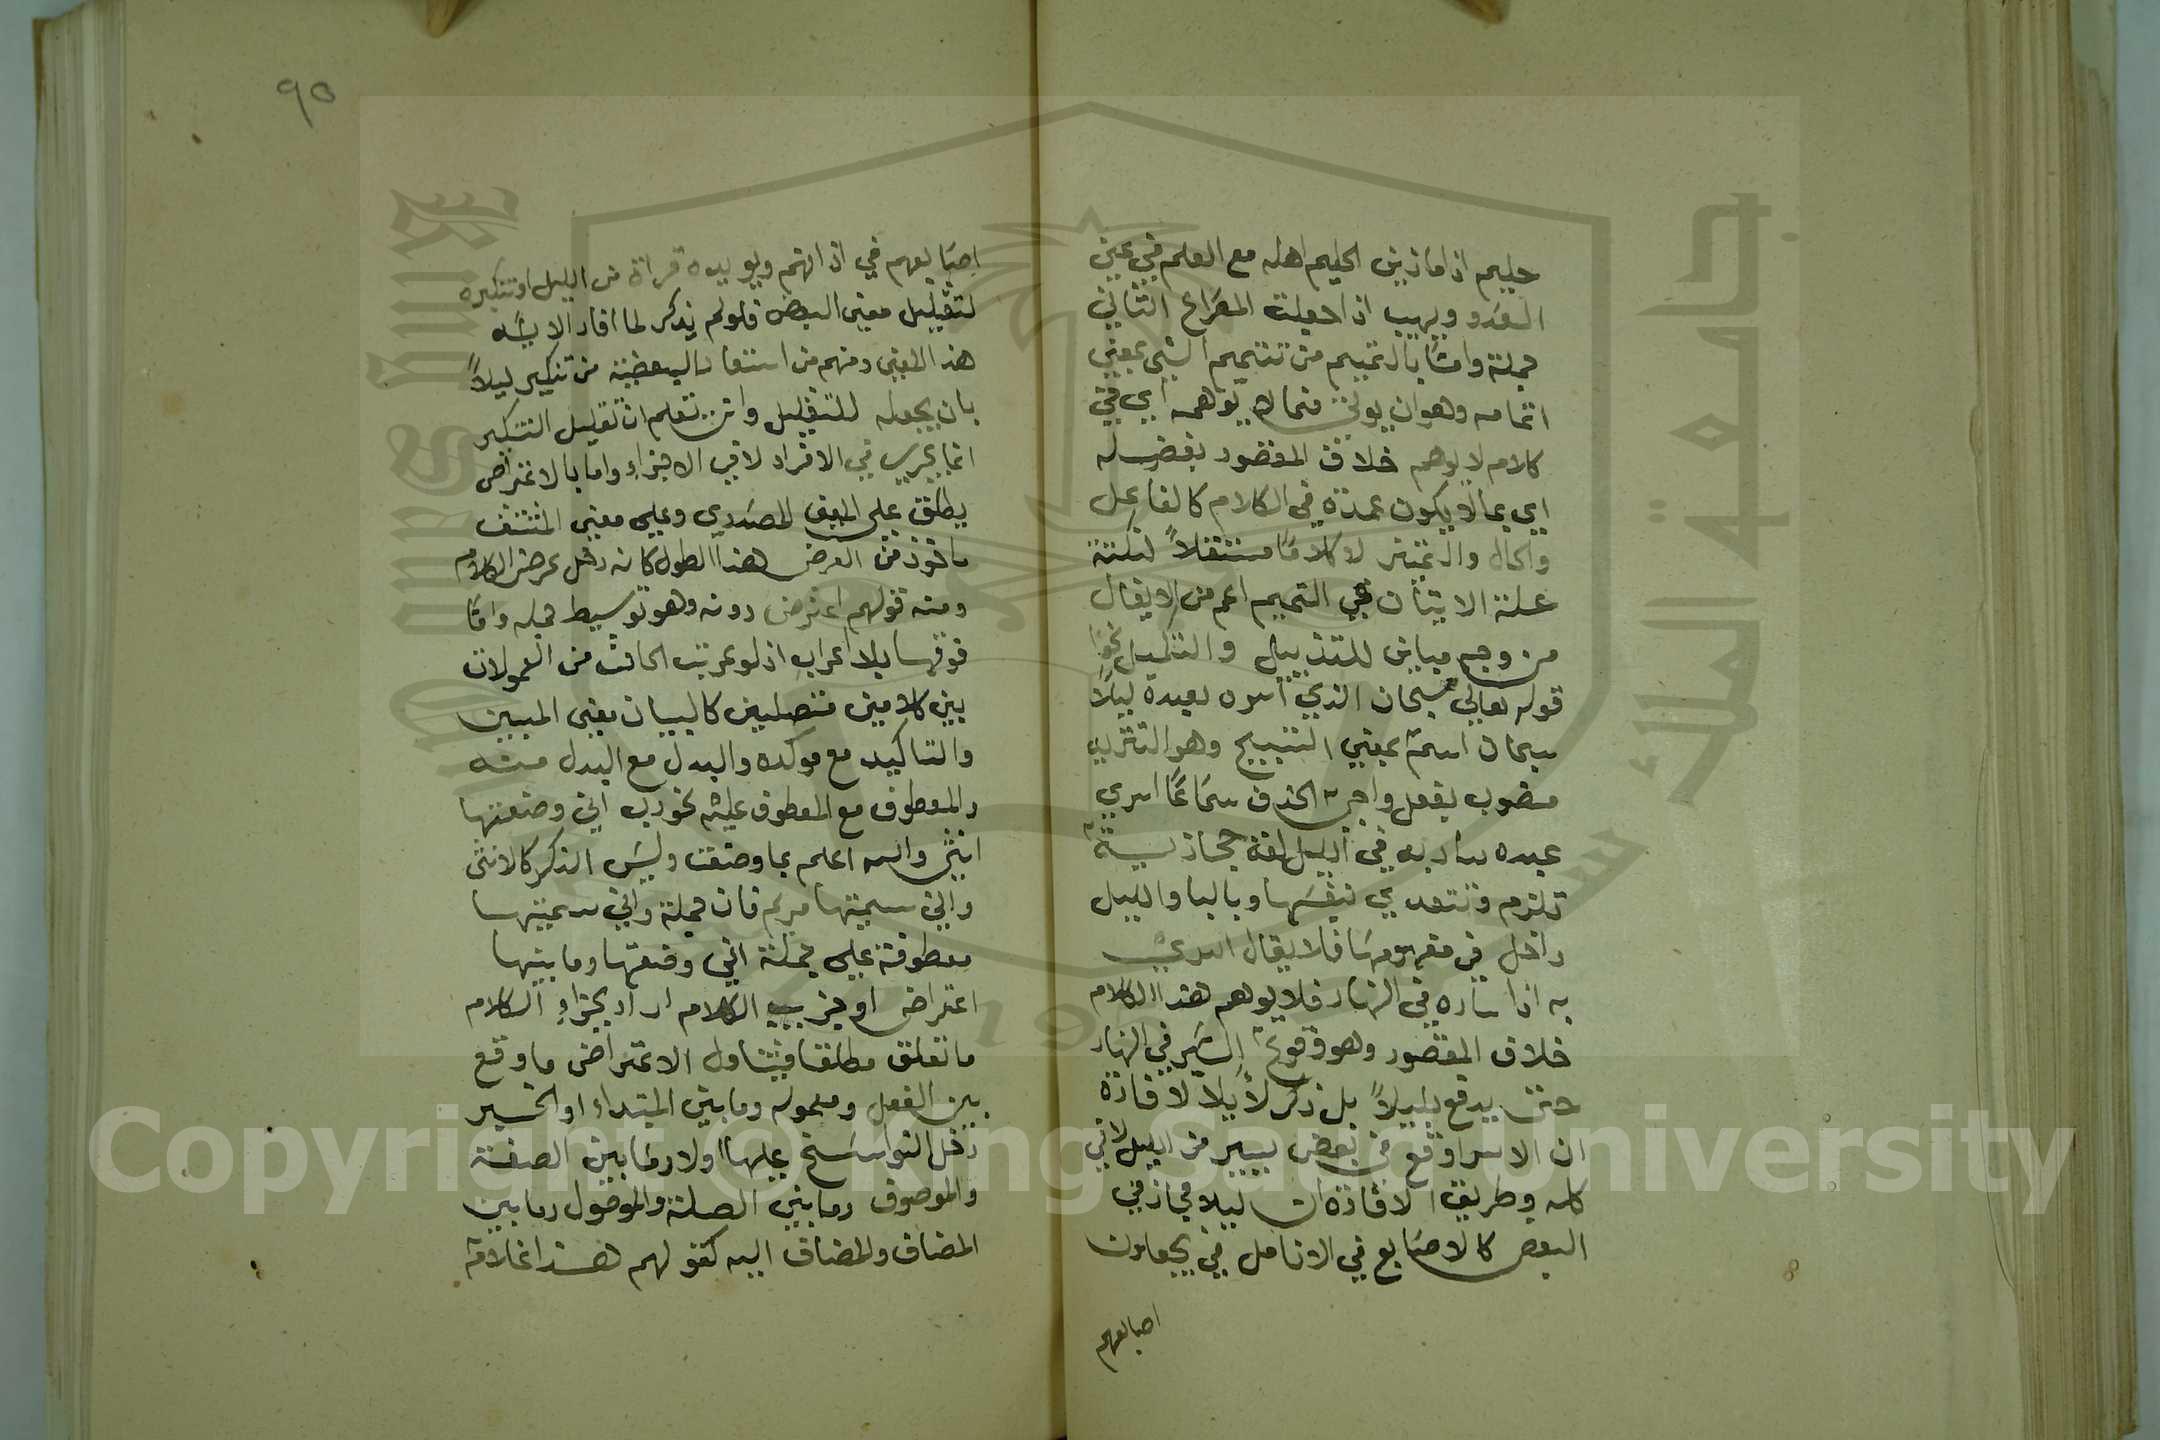 حليم اذا ما زين الحلم اهله مع العلم في عين
العدو ويهيب اذا جعلت المصراع الثاني
جملة واما بالتتميم من تتميم الشي بمعني
اتمامه وهو ان يوتي فيما لا يوهمه اي في
كلام لا يوهم خلاف المقصود بفضله
اي بما لا يكون عمدة في الكلام كالفاعل
والحال والتمييز لا كلاما مستقلاً لنكتة
علة الاتيان في التتميم اعم من الايغال
من وجه مباين للتذييل والتكميل نحو
قوله تعالي سبحان الذي اسري بعبده ليلاً
سبحان اسم بمعني التسبيح وهو التنزيه
منصوب بفعل واجب الحذف سماعًا اسري
عبده سار به في الليل لغة حجازية
تلزم وتتعدي بنفسها وبالبا والليل
داخل في مفهومها فلا يقال اسري
به اذا ساره في النهار فلا يوهم هذا الكلام
خلاف المقصود وهو وقوع السير في النهار
حتي يدفع بليلاً بل ذكر ليلا لافادة
ان الاسرا وقع في بعض يسير من الليل لا في
كله وطريق الافادة ان ليلا مجاز في
البعض كالاصابع في الانامل في يجعلون
اصابعهم
٩٥
اصابعهم في اذانهم ويويده قراة من الليل او تنكيره
لتقليل معني البعض فلو لم يذكر لما افاد الاية
هذا المعني ومنهم من استفاد البعضية من تنكير ليلاً
بان يجعله للتقليل وانت تعلم ان تقليل التنكير
انما يجري في الافراد لا في الاجزاء واما بالاعتراض
يطلق علي المعني المصدري وعلي معني المشتق
ماخوذ من العرض هذا الطول كانه دخل عرض الكلام
ومنه قولهم اعترض دونه وهو توسيط جمله واما
فوقها بلا اعراب اذ لو عربت لكانت من المعمولات
بين كلامين متصلين كالبيان معني المبين
والتاكيد مع موكده والبدل مع البدل منه
والمعطوف مع المعطوف عليه نحو رب اني وضعتها
انثي والله اعلم بما وضعت وليس الذكر كالانثي
واني سميتها مريم فان جملة واني سميتها
معطوفة علي جملة اني وضعتها وما بينها
اعتراض او جزيي الكلام اراد بجزاء الكلام
ما تعلق مطلقا فيتناول الاعتراض ما وقع
بين الفعل ومعموله وما بين المبتداء او الخبر
دخل النواسخ عليها اولا وما بين الصفة
والموصوف وما بين الصلة والموصول وما بين
المضاف والمضاف اليه كقولهم هذا غلام
جامعة الملك سعود
1957
Copyright © King Saud University